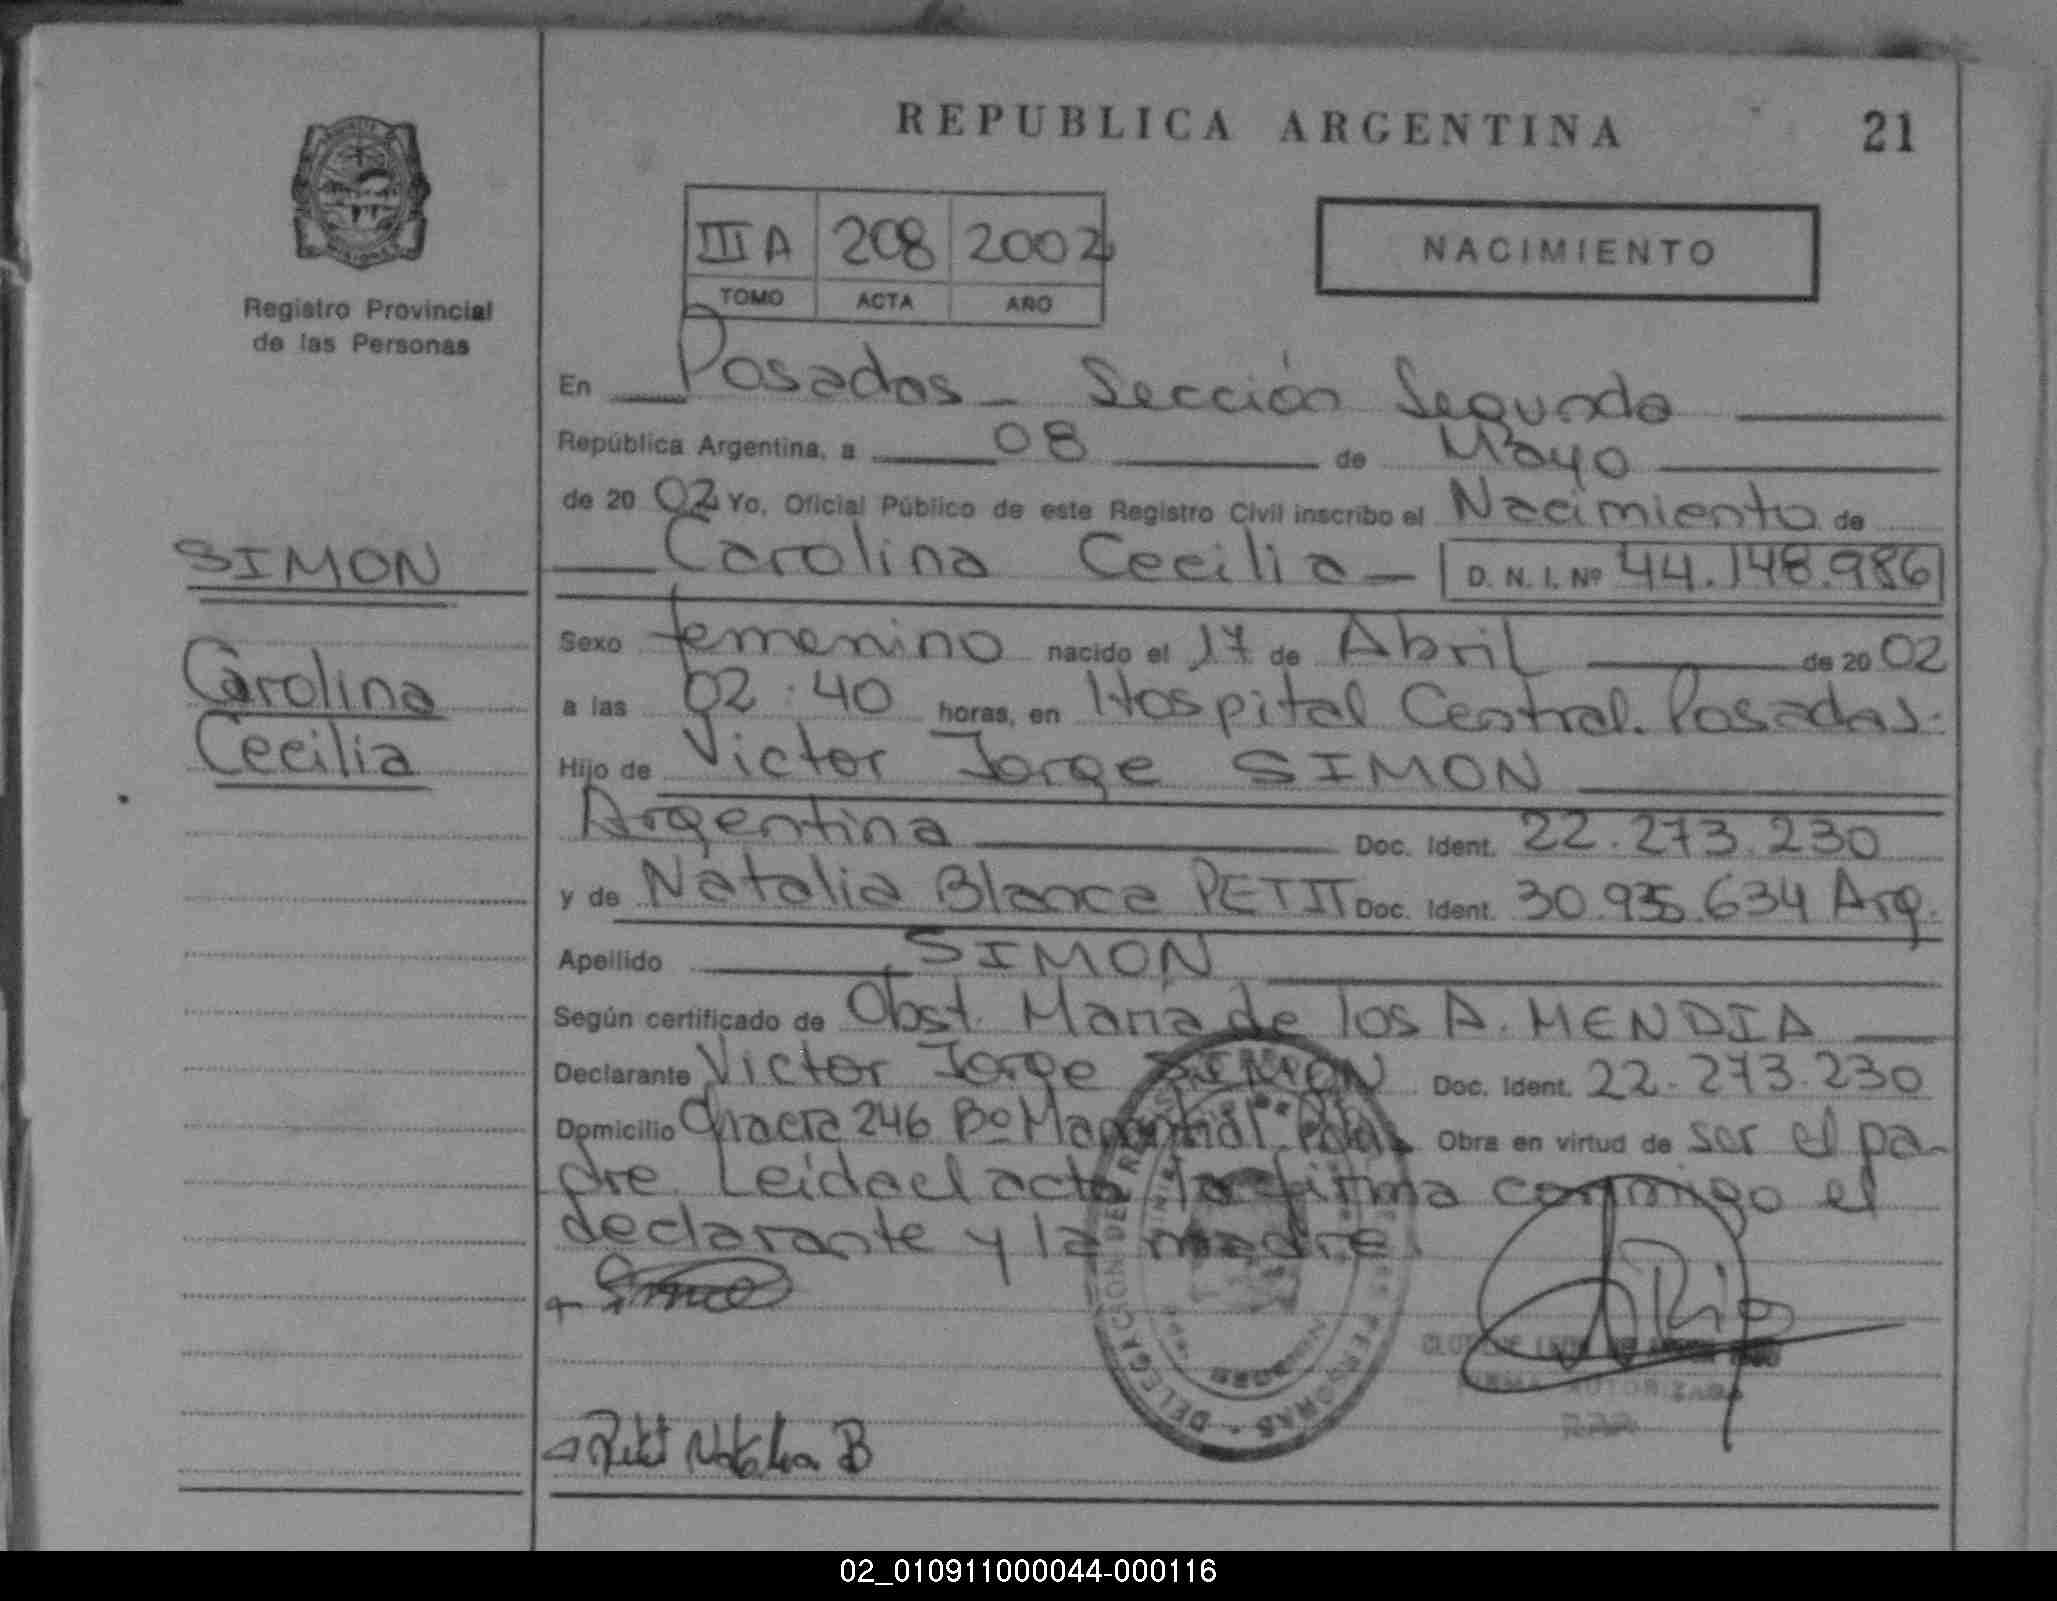 REPUBLICA ARGENTINA
21
Registro Provincial
de las Personas
III A 208 2002
TOMO ACTA AÑO
NACIMIENTO
En Posadas - Sección Segunda
República Argentina, a 08 de Mayo
de 20 02 Yo, Oficial Público de este Registro Civil inscribo el Nacimiento de
Carolina Cecilia - D. N. I. Nº 44.148.986
SIMON
Carolina
Cecilia
Sexo femenino nacido el 17 de Abril de 20 02
a las 02:40 horas, en Hospital Central. Posadas.
Hijo de Victor Jorge SIMON
Argentina Doc. Ident. 22.273.230
y de Natalia Blanca PETIT Doc. Ident. 30.935.634 Arg.
Apellido SIMON
Según certificado de Obst. María de los A. MENDIA
Declarante Victor Jorge SIMON Doc. Ident. 22.273.230
Domicilio Chacra 246 Bº Obra en virtud de ser el pa-
dre. Leida el acta la firma conmigo el
declarante y la madre
Petit Natalia B
DELEGACION DE PERSONAS
FIRMA AUTORIZADA
02_010911000044-000116